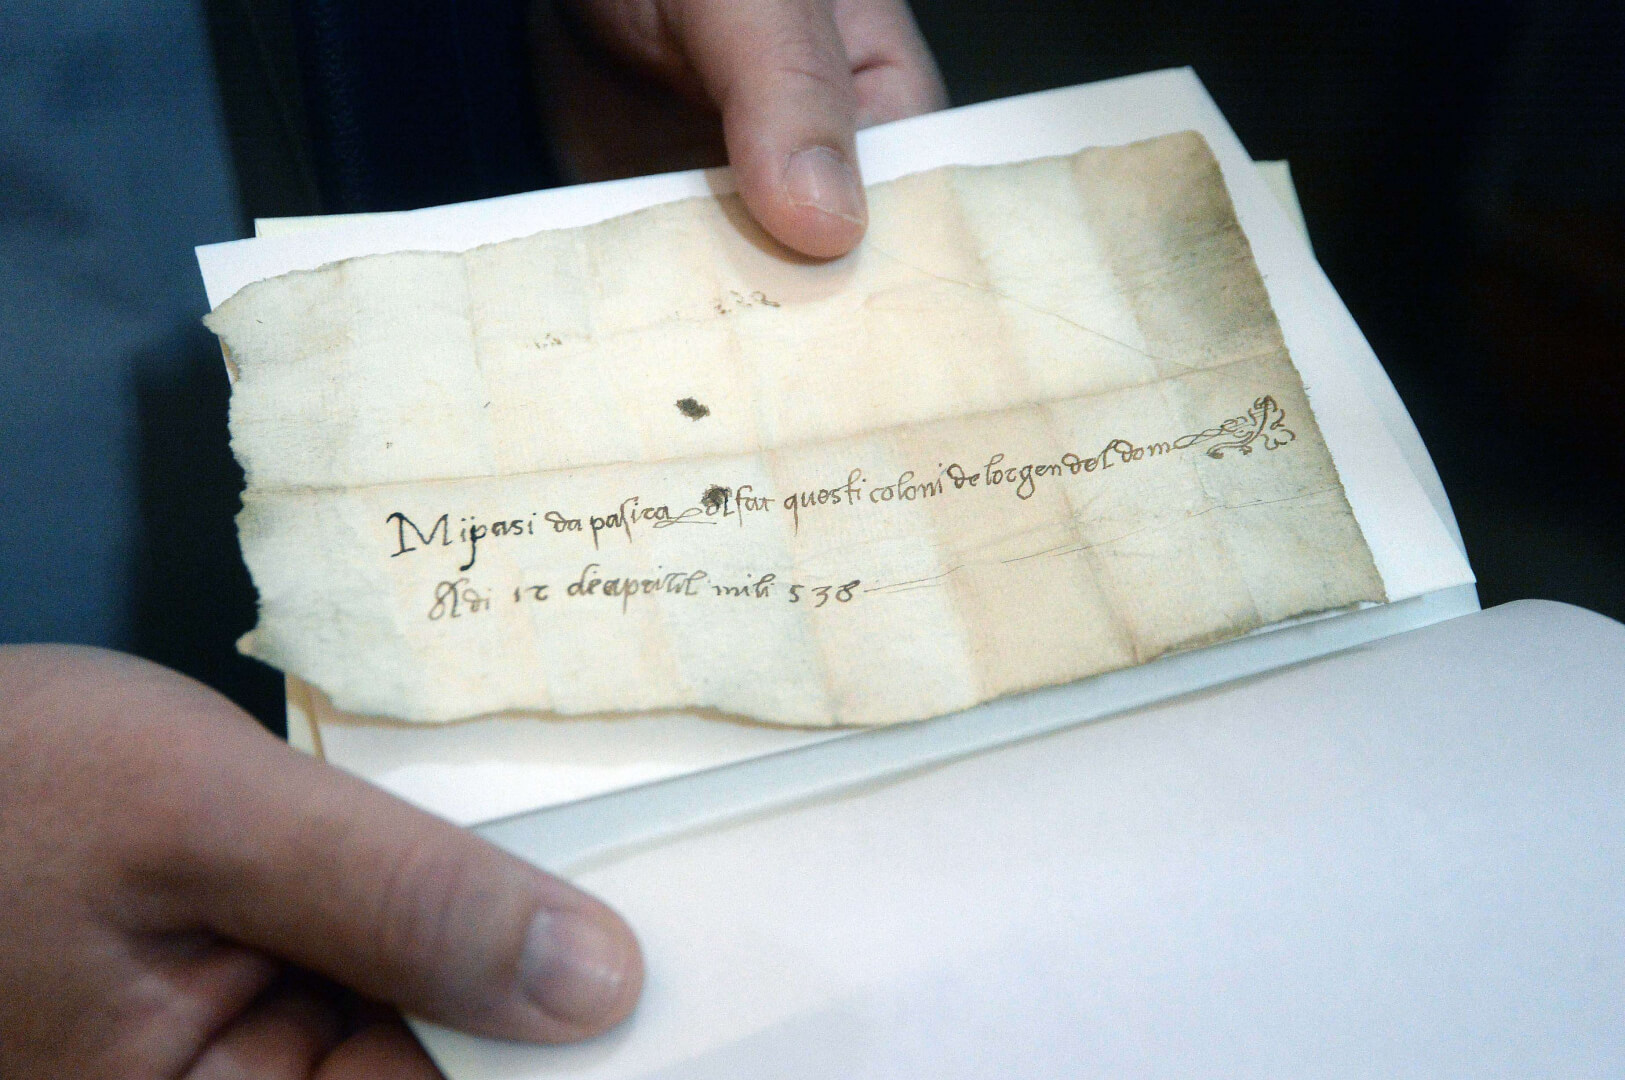 Mi pasi da pasira Al fat questi coloni de lorgen del dom
Adi 12 de aprill mili 538